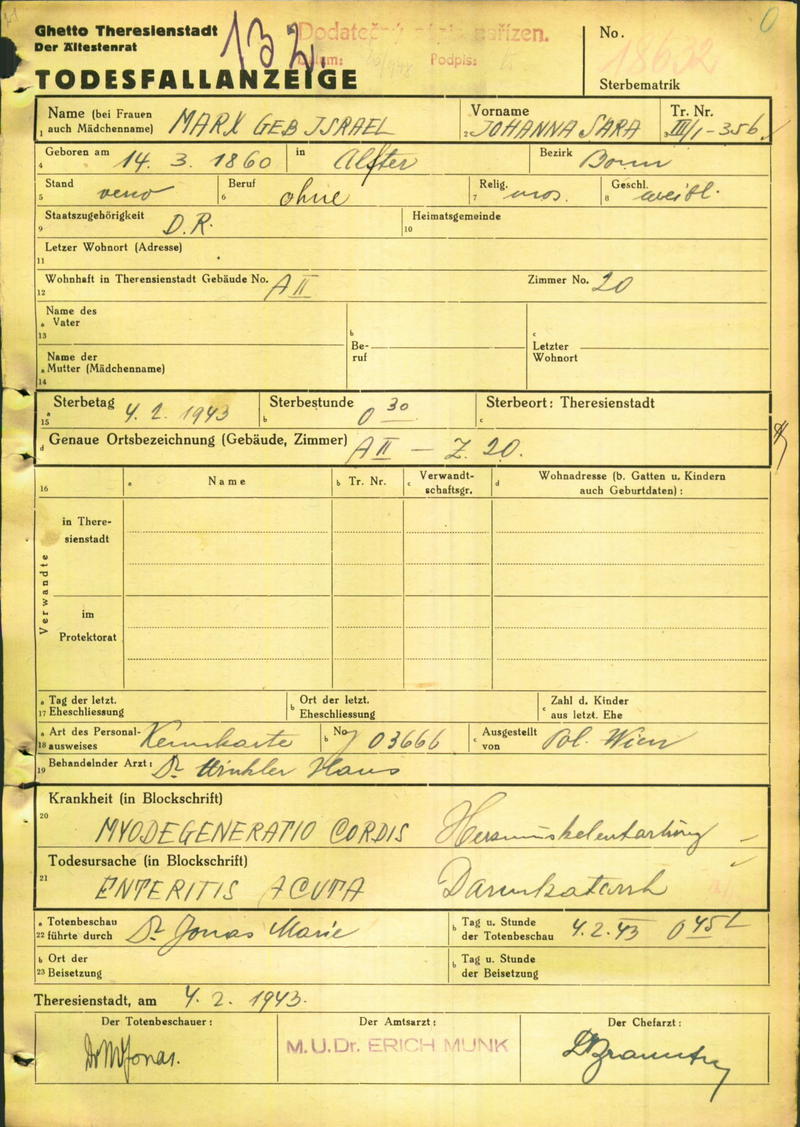 Ghetto Theresienstadt
Der Ältestenrat
132.
Dodatečný zápis pořízen.
Podpis:
TODESFALLANZEIGE
No.
18632
Sterbematrik
Name (bei Frauen auch Mädchenname) MARX GEB ISRAEL
1
Vorname JOHANNA SARA
2
Tr. Nr. III/1-356
3
Geboren am 14. 3. 1860 in Alfter Bezirk Bonn
4
Stand verw Beruf ohne Relig. mos. Geschl. weibl.
5 6 7 8
Staatszugehörigkeit D.R. Heimatsgemeinde
9 10
Letzer Wohnort (Adresse)
11
Wohnhaft in Therensienstadt Gebäude No. A II Zimmer No. 20
12
Name des
a Vater
13
b
Be-
ruf
c
Letzter
Wohnort
Name der
a Mutter (Mädchenname)
14
Sterbetag 4. 2. 1943 Sterbestunde 0 30 Sterbeort: Theresienstadt
a 15 b c
d Genaue Ortsbezeichnung (Gebäude, Zimmer) A II - Z. 20.
16 a Name b Tr. Nr. c Verwandt-
schaftsgr. d Wohnadresse (b. Gatten u. Kindern
auch Geburtdaten) :
Verwandte
in There-
sienstadt
im
Protektorat
a Tag der letzt.
17 Eheschliessung
b Ort der letzt.
Eheschliessung
c Zahl d. Kinder
aus letzt. Ehe
a Art des Personal-
18 ausweises Kennkarte
b No J 03666
c Ausgestellt
von Pol. Wien
19 Behandelnder Arzt: Dr Winkler Hans
Krankheit (in Blockschrift)
20
MYODEGENERATIO CORDIS Herzmuskelentartung
Todesursache (in Blockschrift)
21
ENTERITIS ACUTA Darmkatarrh
a Totenbeschau
22 führte durch Dr Jonas Marie
b Tag u. Stunde
der Totenbeschau 4.2.43 0 45
b Ort der
23 Beisetzung
b Tag u. Stunde
der Beisetzung
Theresienstadt, am 4. 2. 1943.
Der Totenbeschauer:
Der Amtsarzt:
Der Chefarzt:
Dr M Jonas.
M.U.Dr. ERICH MUNK